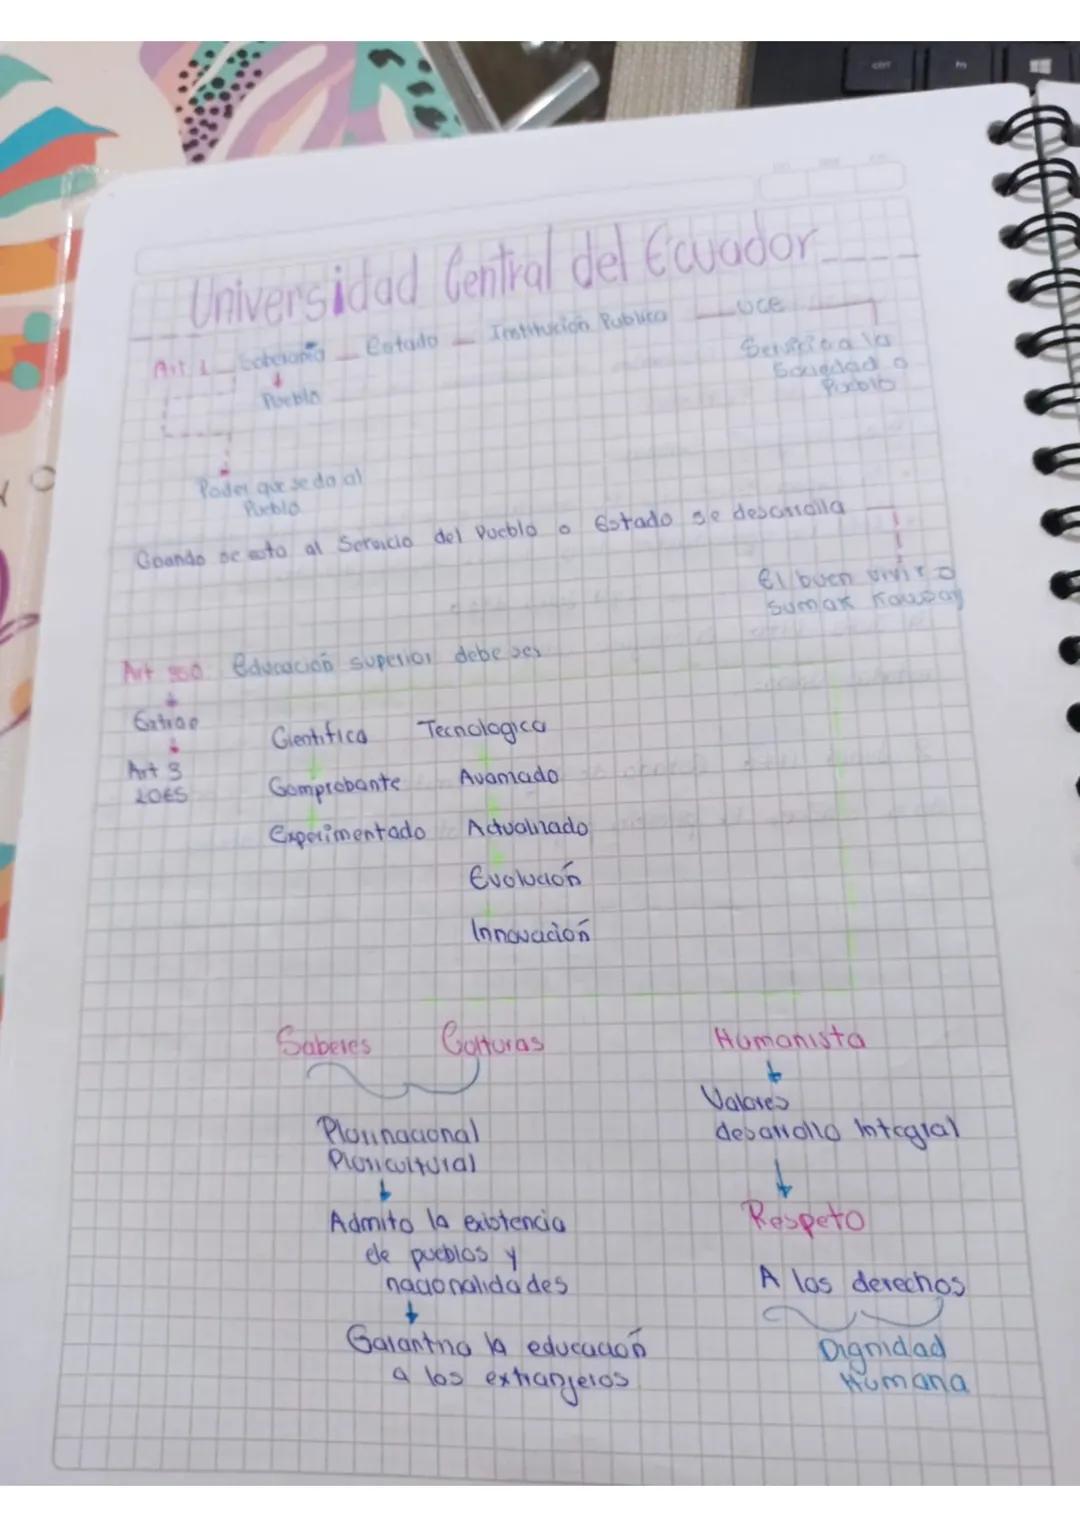 Universidad Central del Ecuador
Art 1 Soberania Estado Institución Publica UCE
Pueblo
Servicio a la
Sociedad o
Pueblo
Poder que se da al
Pueblo
Cuando se esta al Servicio del Pueblo o Estado se desarrolla
El buen vivir o
sumak Kawsay
Art 350 Educación superior debe ser
Extrae
Art 3
LOES
Cientifica Tecnologica
Comprobante Avanzado
Experimentado Actualizado
Evolución
Innovación
Saberes Culturas
Humanista
Valores
desarrollo Integral
Plurinacional
Pluricultural
Respeto
Admito la existencia
de pueblos y
nacionalidades
A los derechos
Garantiza la educación
a los extranjeros
Dignidad
Humana